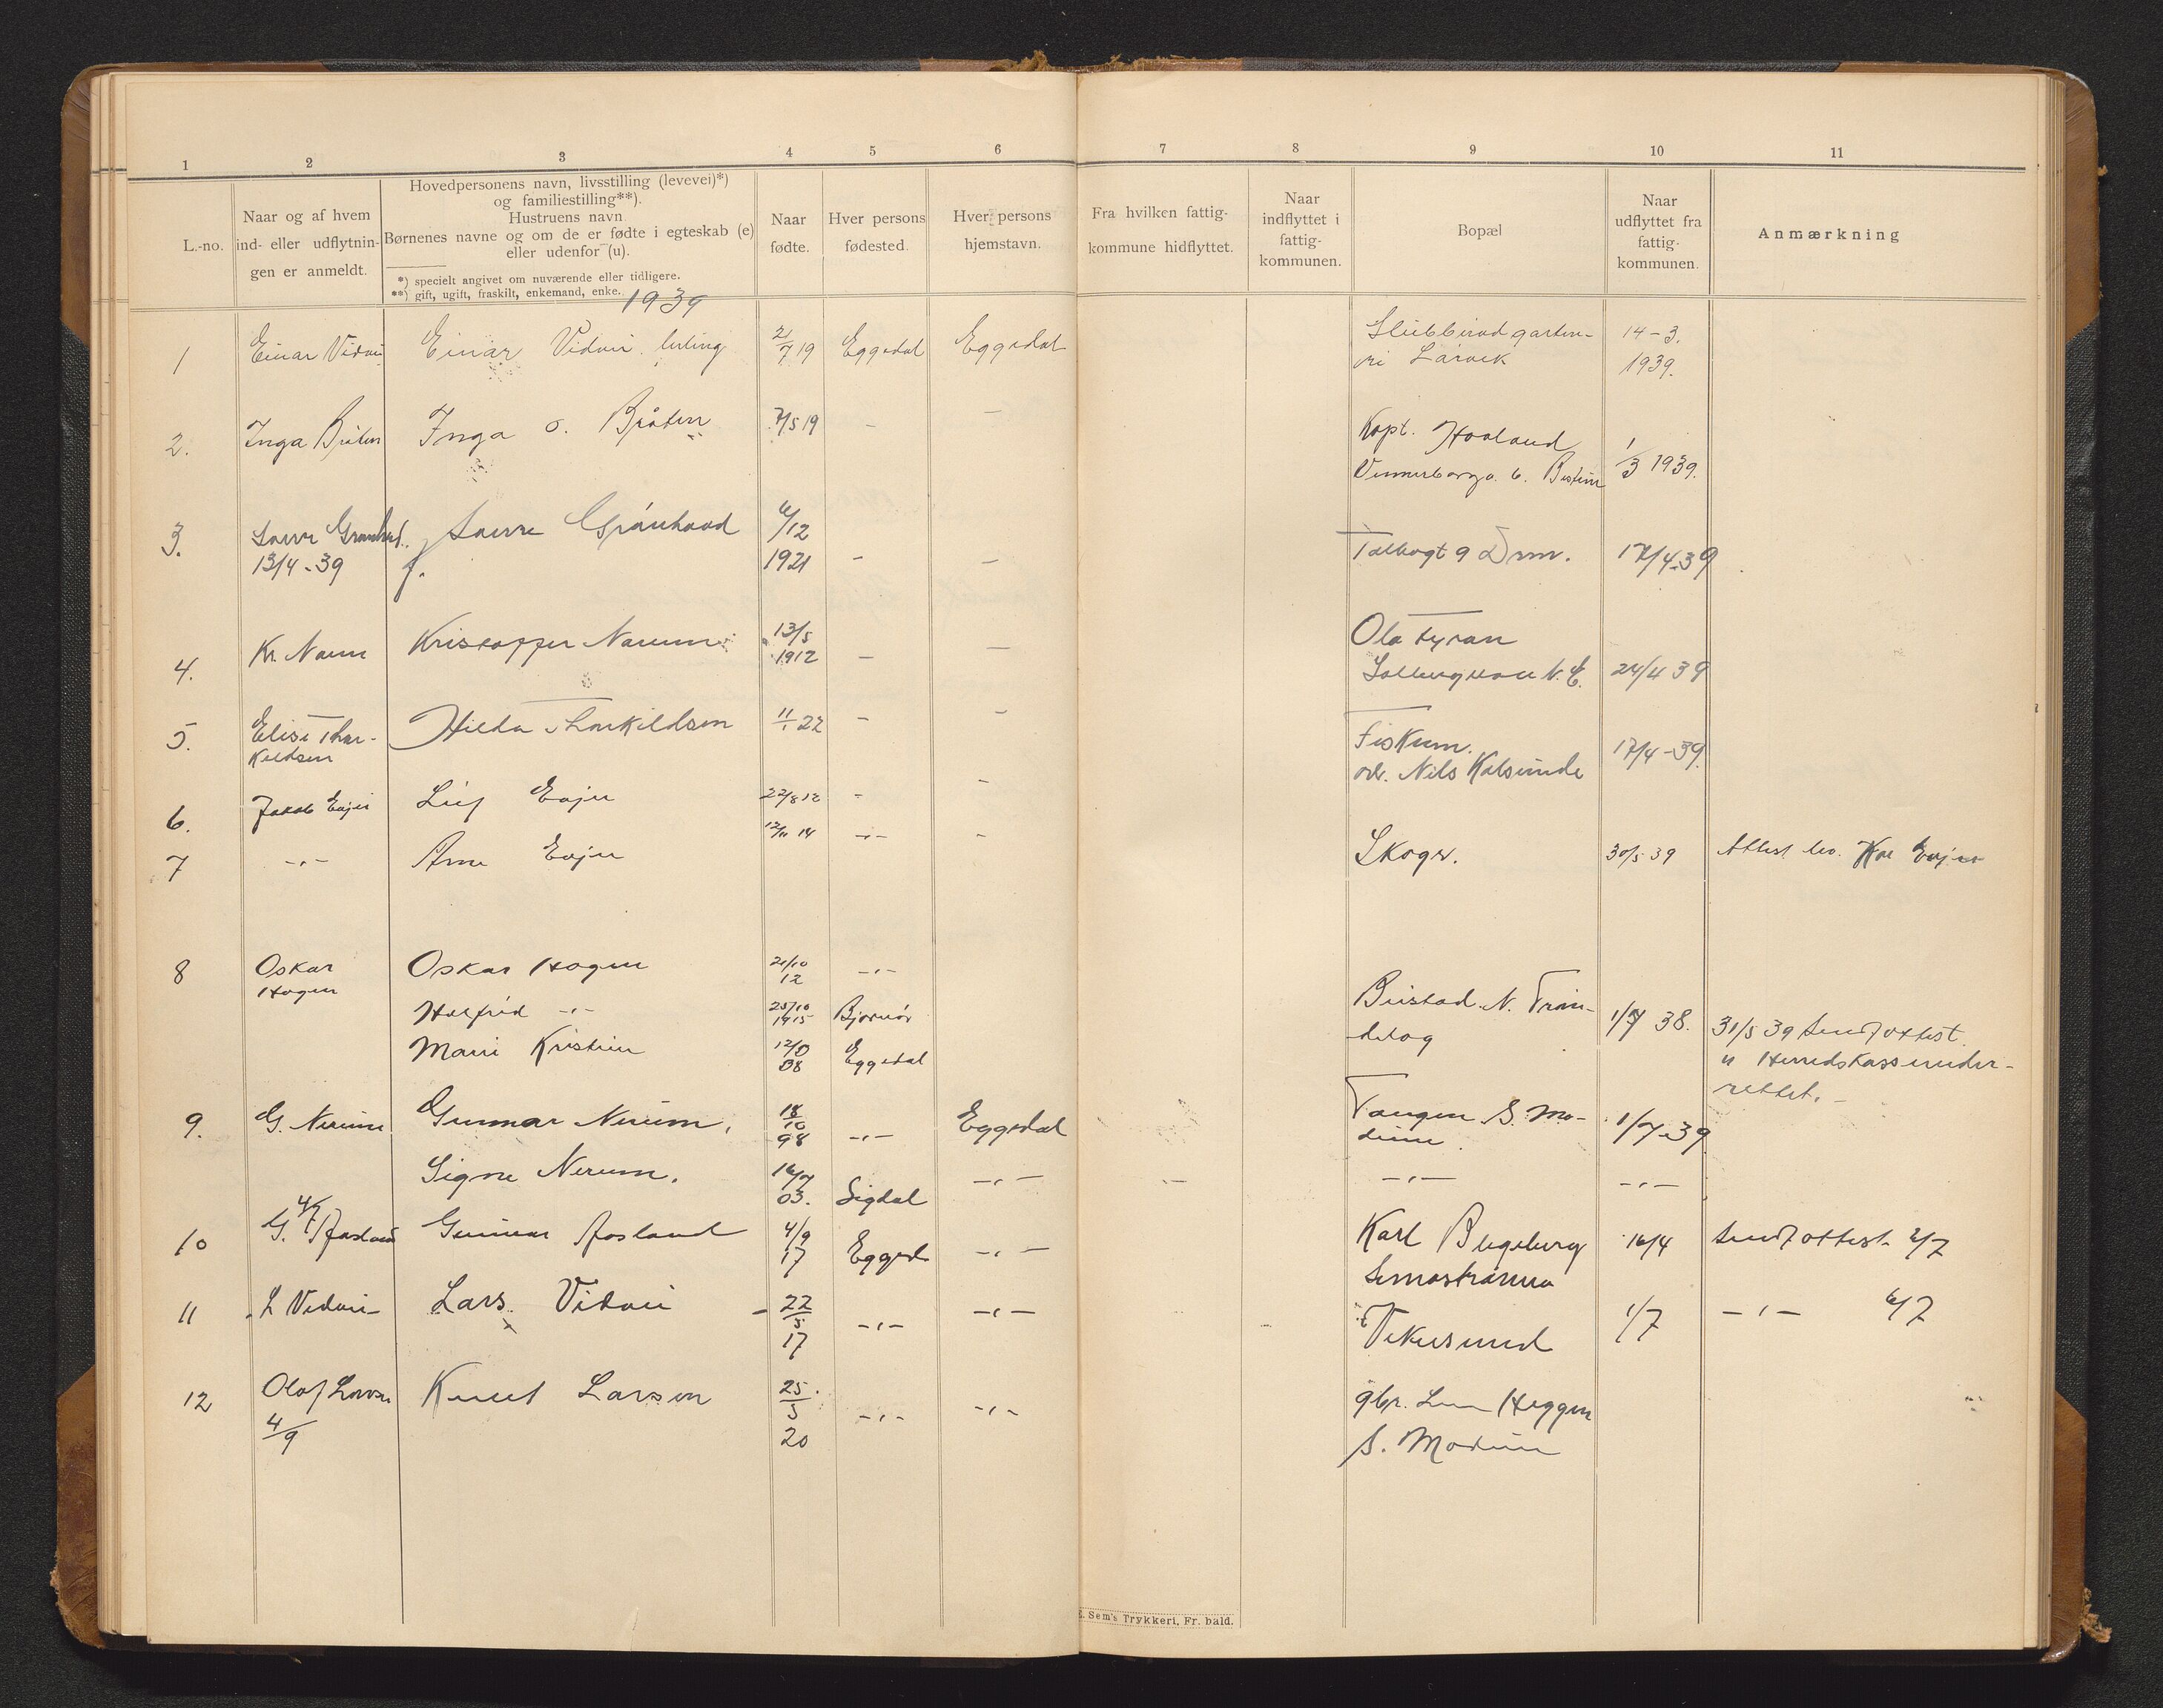 1 2 3 4 5 6 7 8 9 10 11
L.-no.
Naar og af hvem
ind- eller udflytnin-
gen er anmeldt.
Hovedpersonens navn, livsstilling (levevei)*)
og familiestilling**).
Hustruens navn.
Børnenes navne og om de er fødte i egteskab (e)
eller udenfor (u).
*) specielt angivet om nuværende eller tidligere.
**) gift, ugift, fraskilt, enkemand, enke.
Naar
fødte.
Hver persons
fødested.
Hver persons
hjemstavn.
Fra hvilken fattig-
kommune hidflyttet.
Naar
indflyttet i
fattig-
kommunen.
Bopæl
Naar
udflyttet fra
fattig-
kommunen.
Anmærkning
1939
1 Einar Vidvei Einar Vidvei 2/7 19 Eggedal Eggedal 14-3.
Larvik 1939.
2. Inga Bråten Inga O. Bråten 7/5 19 - - Kapt. Haaland
1/3 1939.
3. Sverre Grønhovd Sverre Grønhovd 6/12
13/4 - 39 1921 - - Tollbogt 9 Drm. 17/4-39
4. Kr. Narum Kristoffer Narum 13/5
1912 - - Ola Fyran
N. E. 24/4 39
5. Elise Thor-
kildsen Hilda Thorkildsen 11/1 22 - - Fiskum.
Nils Kolsrude 17/4-39.
6. Jakob Evju Leif Evju 22/8 12 - -
7 -"- Arne Evju 12/11 14 -"- - Skoger. 30/5 39 Attest Evju
8 Oskar
Hagen Oskar Hagen 21/10
12 -"-
Halfrid -"- 25/10
1915 Bjørnør N. Trøn-
delag 1/7 38. 31/5 39 Sendt attest.
Marie Kristine 12/8
38 Eggedal n Herredskass under-
rettet.
9. G. Nerum Gunnar Nerum, 18/10
98 -"- Eggedal Tangen S. Mo-
dum. 1/7-39
Signe Nerum. 16/7
03. Sigdal -"- -"- -"-
10 4/7 G. Åsland Gunnar Åsland 4/9
17 Eggedal -"- Karl 16/4 Sendt attest 4/7
11 L Vidvei Lars Vidvei 22/5
17 -"- -"- Vikersund 1/7 -"- 6/7
12 Olaf Larsen Knut Larsen 25/5
4/9 20 -"- -"- gbr. Heggen
S. Modum
E. Sem's Trykkeri, Fr. hald.